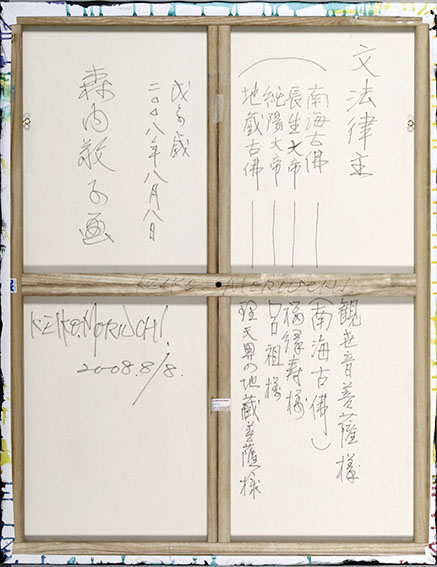 文法律主
南海古佛
長生大帝
純陽大帝
地蔵古佛
戊子歳
二〇〇八年八月八日
森内敬子画
KEIKO MORIUCHI
観世音菩薩様
(南海古佛)
福縁寿様
呂祖様
理天界の地蔵菩薩様
KEIKO.MORIUCHI.
2008.8/8.